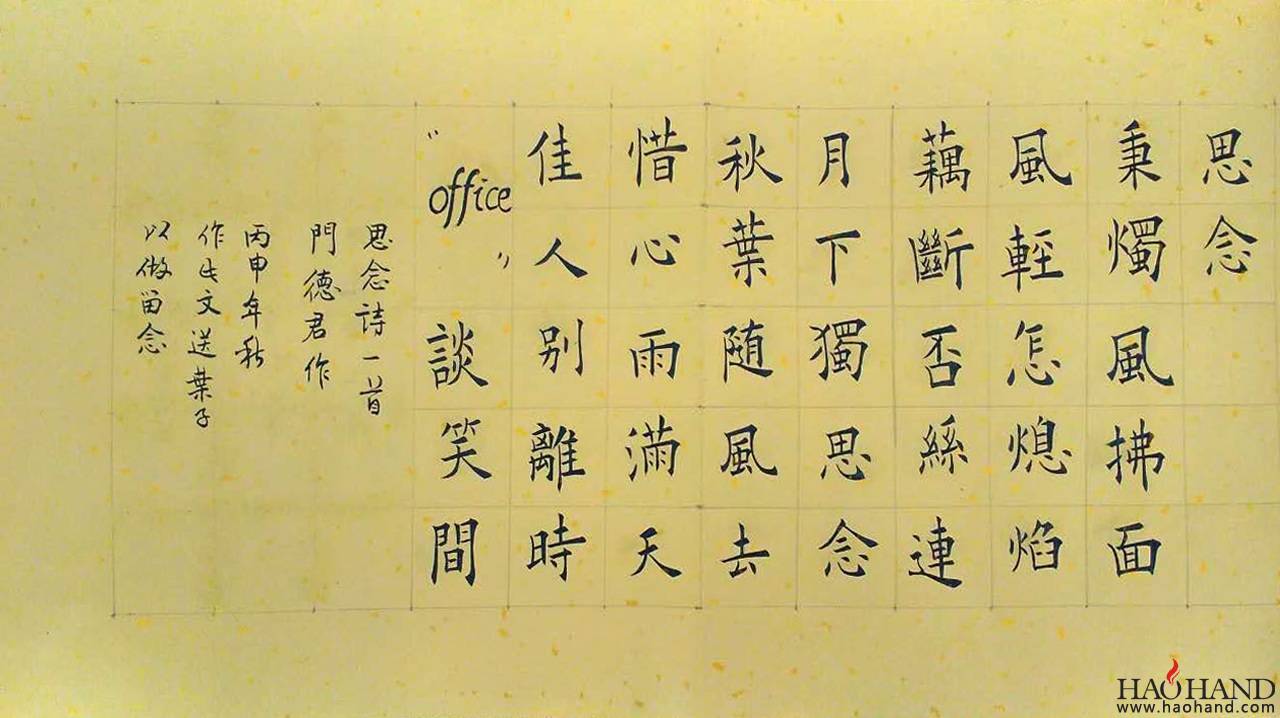 思念
秉燭風拂面
風輕怎熄焰
藕斷否絲連
月下獨思念
秋葉随風去
惜心雨滿天
佳人别離時
"office"談笑間
思念詩一首
門德君作
丙申年秋
作此文送葉子
以做留念
HAOHAND
www.haohand.com